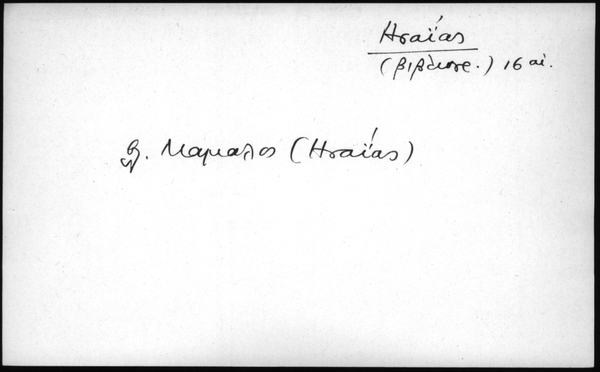 Ησαΐας
(βιβλιογρ.) 16 αι.
βλ. Μαμαλος (Ησαΐας)